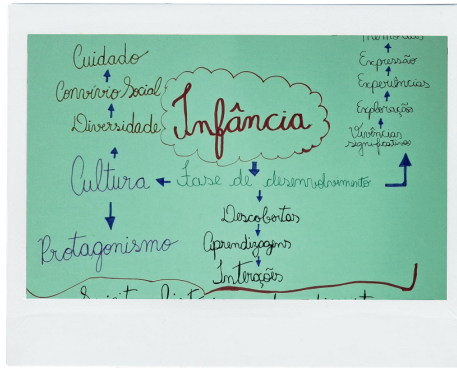 Cuidado
Convívio Social
Diversidade
Cultura
Protagonismo
Infância
Fase de desenvolvimento
Descobertas
Aprendizagens
Interações
Memoriais
Expressão
Experiências
Explorações
Vivências
significativas